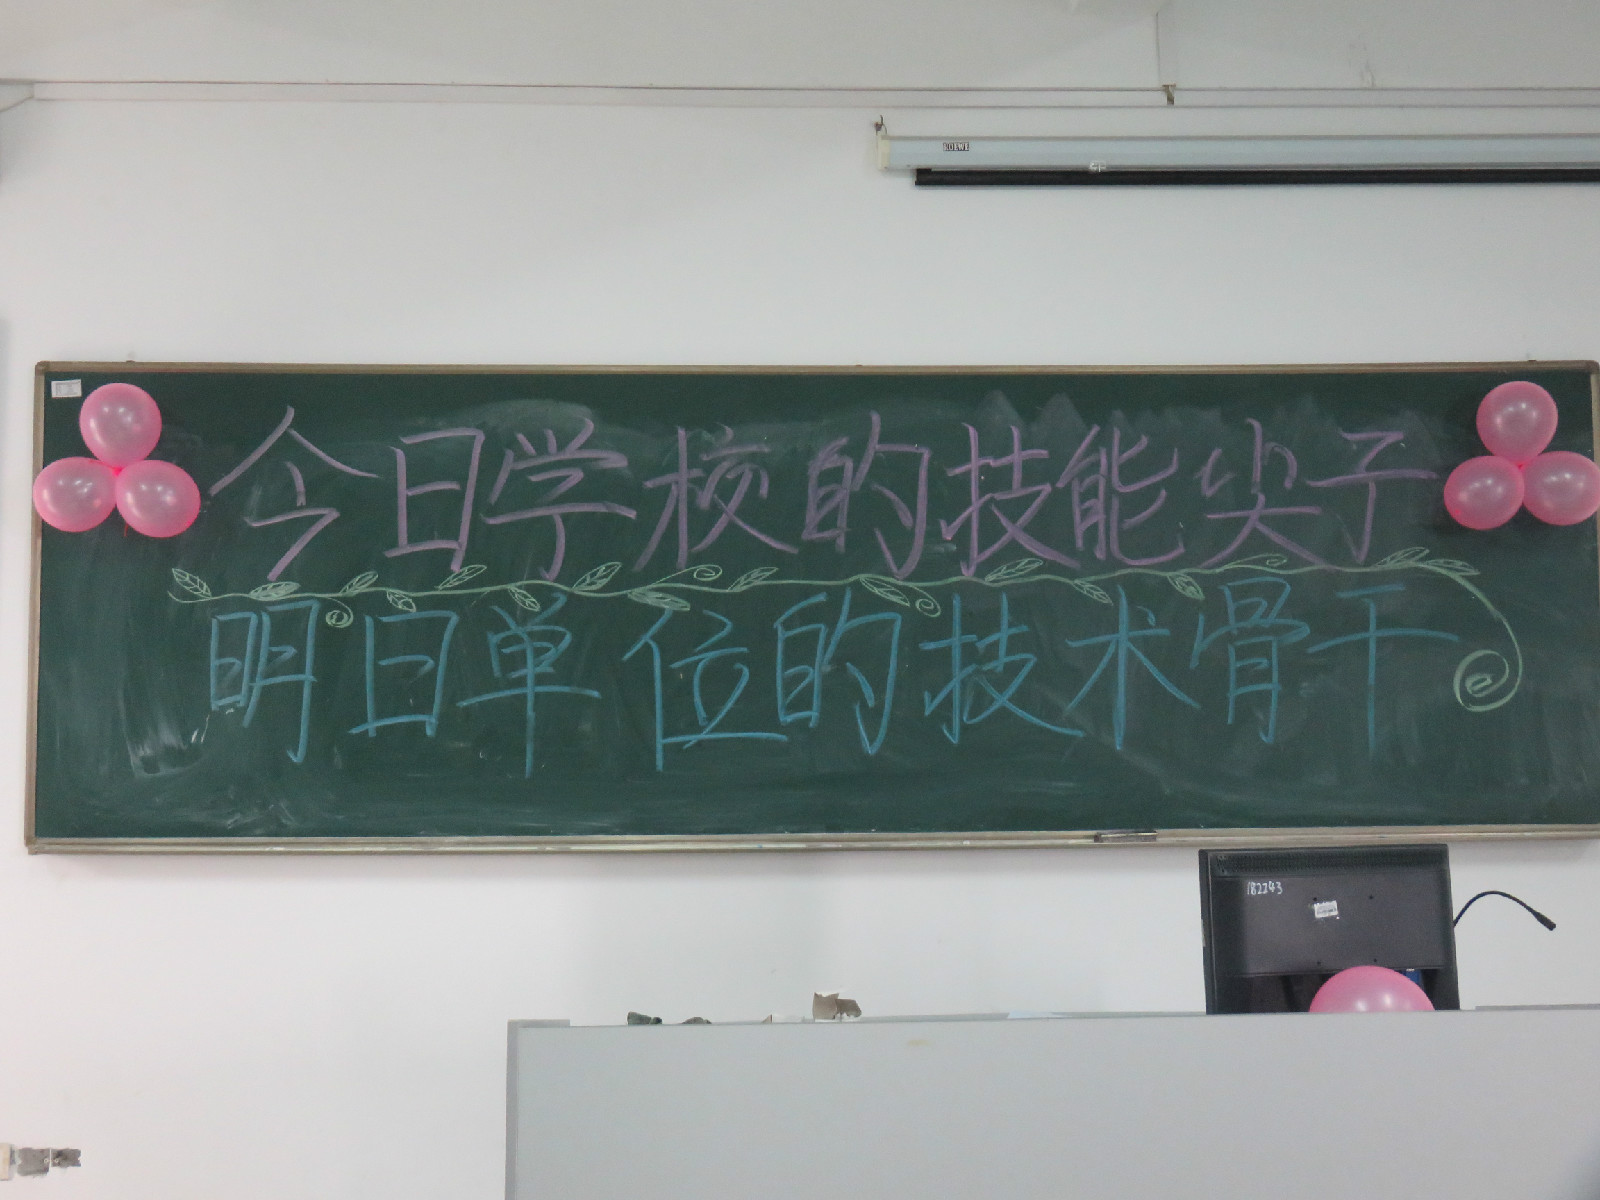 今日学校的技能尖子
明日单位的技术骨干
182243